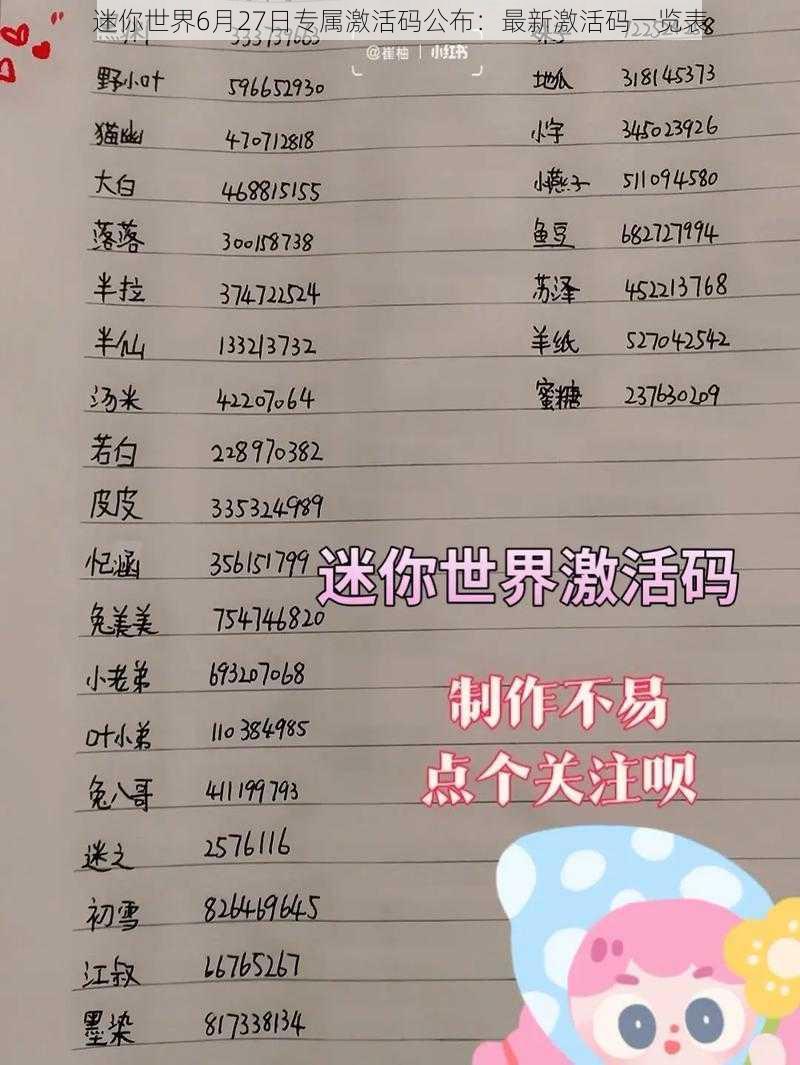 迷你世界6月27日专属激活码公布：最新激活码一览表
@崔柚 | 小红书
333739663
野小叶 596652930
地瓜 318145373
猫幽 470712818
小字 345023926
大白 468815155
小燕子 511094580
落落 300158738
鱼豆 682727994
半拉 374722524
苏泽 452213768
半仙 133213732
羊纸 527042542
汤米 42207064
蜜糖 237630209
若白 228970382
皮皮 335324989
忆涵 356151799
迷你世界激活码
兔美美 754746820
小老弟 693207068
制作不易
叶小弟 110384985
点个关注呗
兔八哥 411199793
迷之 2576116
初雪 826469645
江叔 66765267
墨染 817338134